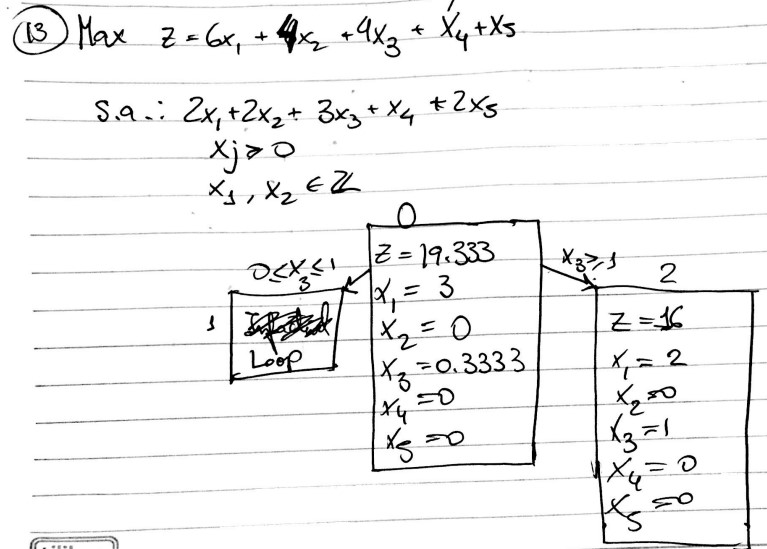 13 Max Z = 6x₁ + 4x₂ + 4x₃ + x₄ + x₅
S.a.: 2x₁ + 2x₂ + 3x₃ + x₄ + 2x₅
xj ≥ 0
x₁, x₂ ∈ ℤ
0
Z = 19.333
x₁ = 3
x₂ = 0
x₃ = 0.3333
x₄ = 0
x₅ = 0
0 ≤ x₃ ≤ 1
1
Loop
x₃ ≥ 1
2
Z = 16
x₁ = 2
x₂ = 0
x₃ = 1
x₄ = 0
x₅ = 0